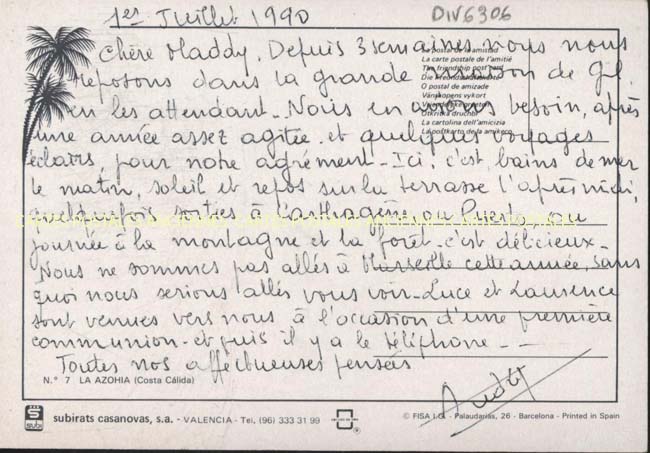 1er Juillet 1990
DIV6306
Chère Maddy, Depuis 3 semaines nous nous
reposons dans la grande maison de Gil
en les attendant - Nous en avons besoin, après
une année assez agitée et quelques voyages
éclairs pour notre agrément - Ici, c'est bains de mer
le matin, soleil et repos sur la terrasse l'après midi,
quelquefois sorties à Carthagène ou Puerto ou
journée à la montagne et la forêt - c'est délicieux -
Nous ne sommes pas allés à Marseille cette année, sans
quoi nous serions allés vous voir - Luce et Laurence
sont venues vers nous à l'occasion d'une première
communion - et puis il y a le téléphone - -
Toutes nos affectueuses pensées
La postal de la amistad
La carte postale de l'amitié
The friendship post card
Die Freundschaftskarte
O postal de amizade
Vänskapens vykort
La cartolina dell'amicizia
La poŝtkarto de la amikeco
N.° 7 LA AZOHIA (Costa Cálida)
subi
subirats casanovas, s.a. - VALENCIA - Tel, (96) 333 31 99
© FISA I.G. - Palaudarias, 26 - Barcelona - Printed in Spain